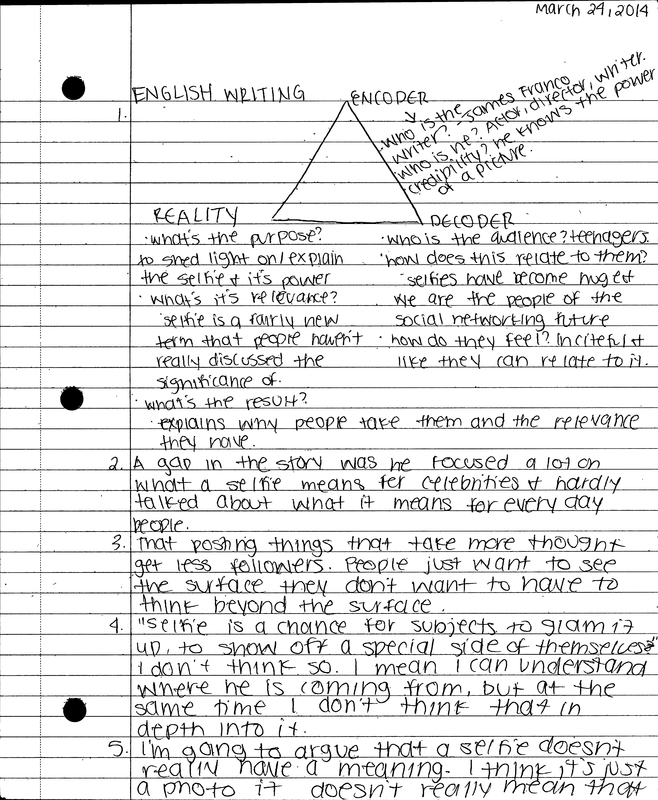 March 24, 2014
ENGLISH WRITING
ENCODER
1.
Who is the
writer? - James Franco
Who is he? Actor, director, writer.
credibility? he knows the power
of a picture.
REALITY
· what's the purpose?
to shed light on/explain
the selfie & it's power
· what's it's relevance?
· selfie is a fairly new
term that people haven't
really discussed the
significance of.
· what's the result?
· explains why people take them and the relevance
they have.
DECODER
· who is the audience? teenagers
· how does this relate to them?
· selfies have become huge &
we are the people of the
social networking future
· how do they feel? inciteful &
like they can relate to it.
2. A gap in the story was he focused a lot on
what a selfie means for celebrities & hardly
talked about what it means for every day
people.
3. That posting things that take more thought
get less followers. People just want to see
the surface they don't want to have to
think beyond the surface.
4. "selfie is a chance for subjects to glam it
up, to show off a special side of themselves"
I don't think so. I mean I can understand
where he is coming from, but at the
same time I don't think that in
depth into it.
5. I'm going to argue that a selfie doesn't
really have a meaning. I think it's just
a photo it doesn't really mean that